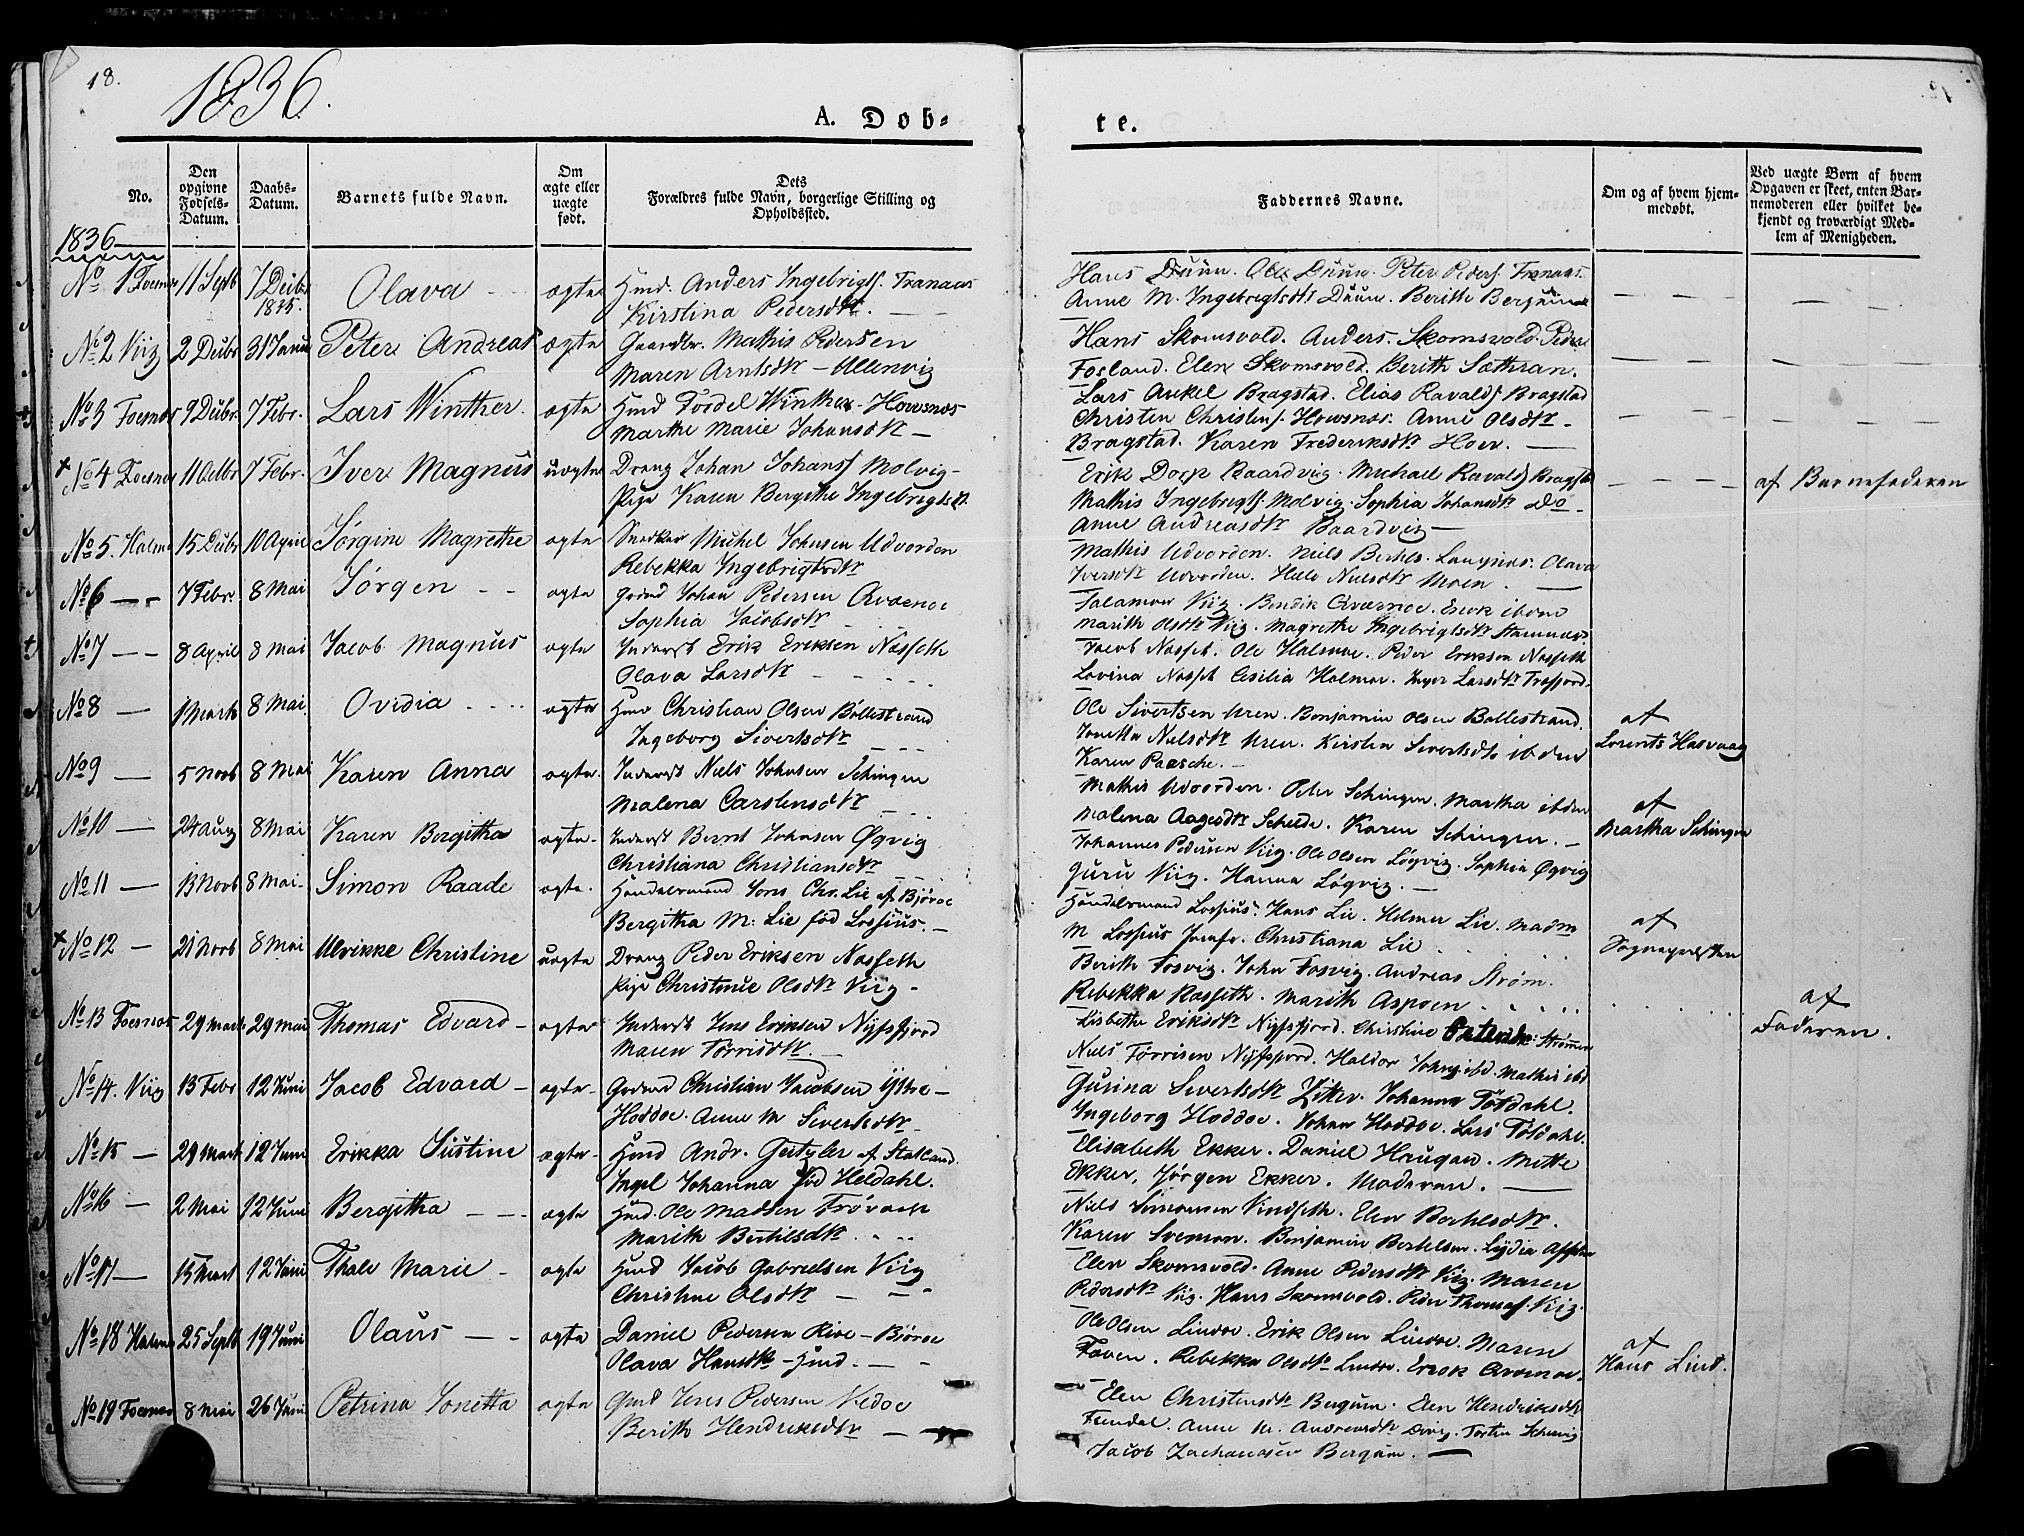 18.
1836.
A. Døb-
te.
No.
Den opgivne Fødsels-Datum.
Daabs-Datum.
Barnets fulde Navn.
Om ægte eller uægte født.
Dets Forældres fulde Navn, borgerlige Stilling og Opholdssted.
Faddernes Navne.
Om og af hvem hjemmedøbt.
Ved uægte Børn af hvem Opgaven er skeet, enten Barnemoderen eller hvilket bekjendt og troværdigt Medlem af Menigheden.
1836
No 1 Foesnes 11 Septb 7 Decbr 1835. Olava ægte Hmd. Anders Ingebrigts. Tranaas
Kirstina Pedersdtr.
Hans Duun. Ole Duun. Peter Peders. Tranaas.
Anne M. Ingebrigtsdtr Duun. Berith Bergum
No 2 Viig 2 Decbr 31 Janu Peter Andreas ægte Gaardbr. Mathis Pedersen
Maren Arntsdtr - Ullenvig
Hans Skomsvold. Anders. Skomsvold. Peder
Fosland. Elen Skomsvold. Berith Sæthran.
No 3 Foesnes 9 Decbr. 7 Febr. Lars Winther. ægte Hmd Tordel Winther - Howsnæs
Marthe Marie Johansdtr -
Lars Ankel Bragstad. Elias Ravalds Bragstad
Christen Christens. Howsnæs. Anne Olsdtr.
Bragstad. Karen Frederiksdtr Hoev.
No 4 Foesnes 11 Octbr 7 Febr. Iver Magnus uægte Dreng Johan Johans. Molvig -
Pige Karen Bergithe Ingebrigtsdtr.
Erik Dorp Baardvig. Michael Ravalds Bragstad
Mathis Ingebrigts. Molvig. Sophia Johansdtr Do.
Anne Andreasdtr Baardvig
af Barnefaderen
No 5. Halmø 15 Decbr 10 April Jørgine Magrethe ægte Snedker Michel Johnsen Udvorden
Rebekka Ingebrigtsdtr
Mathis Udvorden. Niels Berthels. Langnæs. Olava
Iversdtr Udvorden. Hæle Nielsdtr Moen.
No 6 7 Febr. 8 Mai Jørgen ægte Grdmd Johan Pedersen Qværnøe
Sophia Jacobsdtr
Salamon Viig. Bendik Qværnøe. Erek ibdm
Marith Olsdtr Viig. Magrethe Ingebrigtsdtr Stamnæs
No 7 8 April 8 Mai Jacob Magnus ægte Inderst Erik Eriksen Nosseth
Olava Larsdtr
Jacob Nosset. Ole Halmøe. Peder Eriksen Nosseth
Lovina Nosset Cicilia Halmøe. Inger Larsdtr Trøfjord
No 8 1 Marts 8 Mai. Ovidia ægte Hmd Christian Olsen Bøllestrand
Ingeborg Sivertsdtr
Ole Sivertsen Uren. Benjamin Olsen Bøllestrand.
Jonetta Nielsdtr Uren. Kirsten Sivertsdtr ibdm
Karen Paasche.
af
Lorents Hasvaag
No 9 5 Novb 8 Mai Karen Anna ægte. Inderst Niels Johnsen Schingen
Malena Carstensdtr
Mathis Udvorden. Peter Schingen. Martha ibdm
Malena Aagesdtr Scheide. Karen Schingen.
af
Martha Schingen
No 10 24 Aug 8 Mai Karen Bergitha ægte. Inderst Bernt Johnsen Øgvig
Christiana Christiansdtr
Johannes Pedersen Viig. Ole Olsen Løgvig. Sophia Øgvig
Guru Viig. Hanna Løgvig.
No 11 13 Novb 8 Mai. Simon Raade ægte. Handelsmand Jens Chr. Lie af Bjørøe
Bergitha M: Lie fød Lossius.
Handelsmand Lossius. Hans Lie. Helmer Lie. Madm
M Lossius Jomfr. Christiana Lie
af
Sognepresten
No 12 21 Novb 8 Mai Ulrikke Christine uægte Dreng Peder Eriksen Nosseth
Pige Christine Olsdtr Viig.
Berith Fosvig. John Fosvig. Andreas Strøm.
Rebekka Nosseth. Marith Aspøen.
af
Faderen.
No 13 Foesnes 29 Marts 29 Mai Thomas Edvard ægte Inderst Jens Eriksen Nyssfjord
Maren Tørrisdtr.
Lisbethe Eriksdtr Nyssfjord. Christine Strømmen
Niels Tørrisen Nyssfjord. Haldor Johns ibd. Mathis ibd
No 14. Viig 13 Febr 12 Juni Jacob Edvard ægte Grdmd Christian Jacobsen Ystre -
Hoddøe. Anne M Sivertsdtr.
Gurina Sivertsdtr Zitter. Johanna Tøtdahl.
Ingeborg Hoddøe. Johan Hoddøe. Lars Tøtdahl.
No 15 29 Marts 12 Juni Erikka Justine ægte Hmd Andr. Geitzler af Statland.
Ingl Johanna fød Heldahl.
Elisabeth Ekker. Daniel Haugan. Mette
Ekker. Jørgen Ekker. Moderen.
No 16 2 Mai 12 Juni Bergitha ægte Hmd. Ole Madsen Trøraen
Marith Bertilsdtr.
Niels Simonsen Vindseth. Elen Berthelsdtr.
Karen Svemon. Benjamin Bertelsen. Lydia
No 17 15 Marts 12 Juni Thale Marie ægte Hmd Jacob Gabrielsen Viig
Christine Olsdtr
Elen Skomsvold. Anne Pedersdtr Viig. Maren
Pedersdtr Viig. Hans Skomsvold. Peder Thomas. Viig.
No 18 Halmø 25 Septb 19 Juni Olaus ægte Daniel Pedersen Rive - Bjørøe
Olava Hansdtr - Hmd.
Ole Olsen Lindøe. Erik Olsen Lindøe. Maren
Faven. Rebekka Olsdtr Lindøe. Erek
af
Hans Lind.
No 19 Foesnes 8 Mai 26 Juni Petrina Jonetta ægte Gmd Jens Pedersen Vedøe
Berith Hendriksdtr
Elen Christensdtr Bergum. Elen Hendriksdtr
Fremdal. Anne M. Andreasdtr Divig. Torten Schevig
Jacob Zachariasen Bergum.